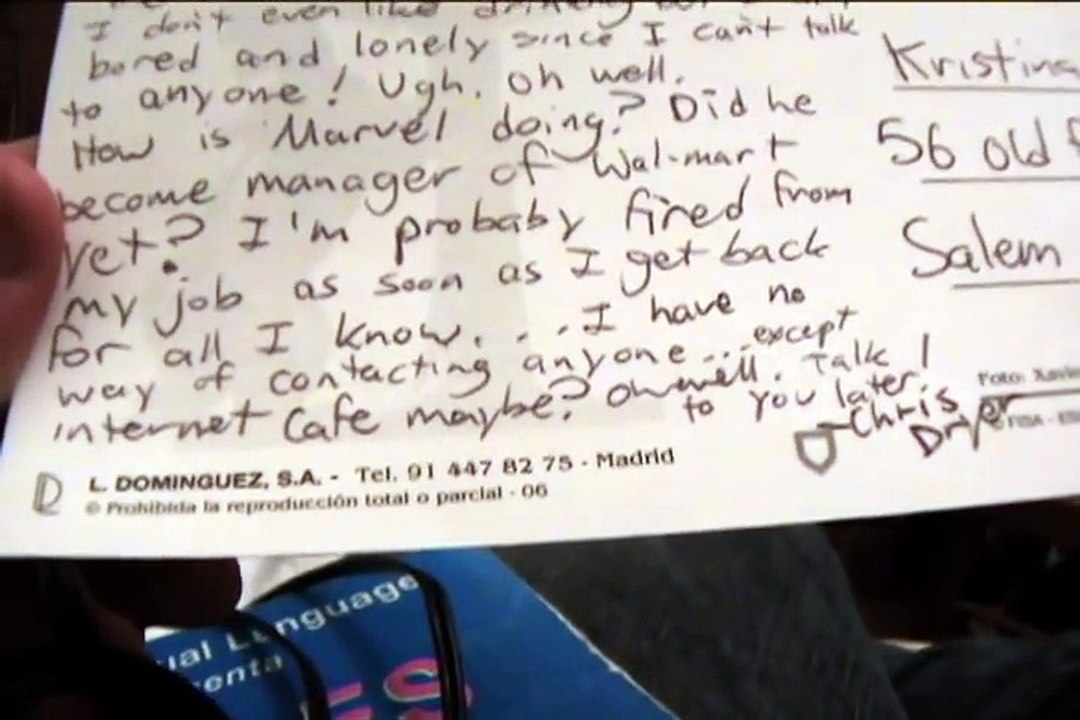 I don't even like drinking
bored and lonely since I can't talk
to anyone! Ugh. oh well.
How is Marvel doing? Did he
become manager of Wal-mart
yet? I'm probaby fired from
my job as soon as I get back
for all I know. . . . I have no
way of contacting anyone... except
internet Cafe maybe? Oh well. Talk
to you later!
-Chris
Dryer
Kristina
56 old
Salem
Foto: Xavi
L. DOMINGUEZ, S.A. - Tel. 91 447 82 75 - Madrid
© Prohibida la reproducción total o parcial - 06
ual Language
enta
ES